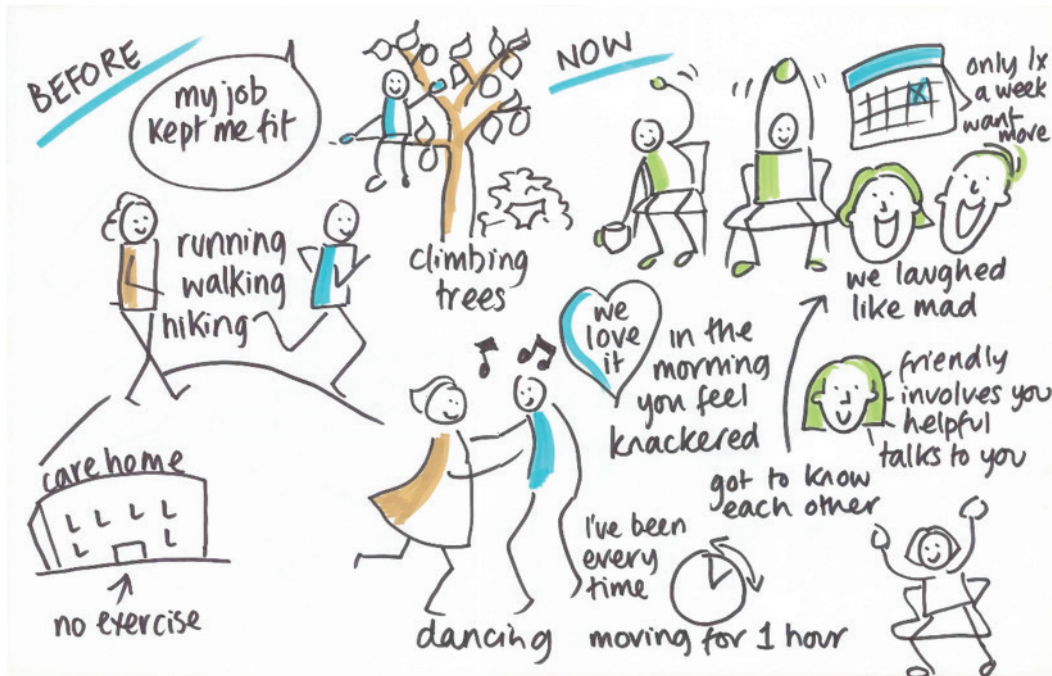 BEFORE
my job
kept me fit
running
walking
hiking
climbing
trees
care home
no exercise
dancing
NOW
only 1x
a week
want
more
we laughed
like mad
we
love
it
in the
morning
you feel
knackered
friendly
involves you
helpful
talks to you
got to know
each other
I've been
every
time
moving for 1 hour